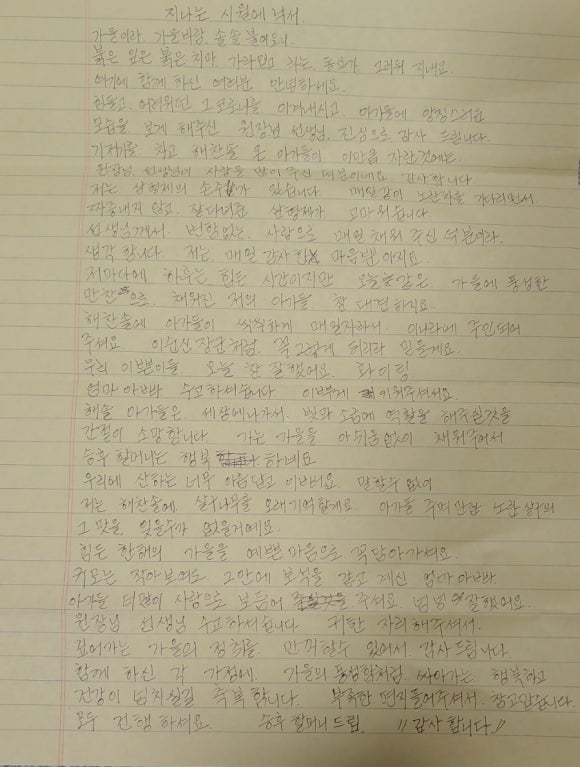 지나는 시월에 낙서.
가을이라. 가을바람. 솔솔 불어오니
붉은 잎은 붉은 치마 가라입고 그리워 지네요.
여기에 함께 하신 여러분 안녕하세요.
힘들고. 어려웠던 그 코로나를 이겨내시고. 아가들에 앙징스러운
모습을 보게 해주신 원장님 선생님. 진심으로 감사 드립니다.
기저귀를 차고 해찬솔 온 아가들이 이만큼 자란것에는.
원장님. 선생님이 사랑을 많이 주신 덕분이네요. 감사합니다
저는 삼형제의 손주가 있습니다 매일같이 노란차를 기다리면서.
짜증내지 않고. 잘다녀준 삼형제가 고마워습니다
선생님께서. 변함없는. 사랑으로 매일 채워 주신 덕분이라.
생각 합니다 저는. 매일 감사한 마음뿐.이지요.
저마다에 하루는. 힘든 시간이지만 오늘같은. 가을에 풍성한
만찬으로. 채워진 저의 아가들 참 대견하지요.
해찬솔에 아가들이 씩씩하게 매일자라서. 이나라에 주인되어
주세요. 이순신 장군처럼. 꼭 그렇게 되리라 믿을게요.
우리 이쁜이들. 오늘 참 잘했어요. 화이팅
엄마 아빠. 수고하셔습니다 이쁘게 키워주셔서요.
해솔 아가들은. 세상에나가서. 빛과 소금에 역활을 해주실것을
간절이 소망합니다 가는 가을을 아쉬움없이 채워주어서
승후 할머니는 행복 하네요
우리에 산하는 너무 아름답고 이뻐요. 말할수 없이
저는 해찬솔에. 살구나무를 오래기억할게요. 아가들 주먹만한 노란 살구의
그 맛을. 잊을수가 없을거예요.
힘든 한해의 가을을 예쁜마음으로 꼭담아가셔요.
키모는 작아보여도. 그안에 보석을 갖고 계신 엄마아빠
아가들 더많이 사랑으로 보듬어 주세요. 넘넘 잘했어요.
원장님 선생님 수고하셔습니다 귀한 자리해주셔서.
깊어가는 가을의 정취를. 만끽할수 있어서. 감사드립니다.
함께 하신 각 가정에. 가을의 풍성함처럼. 쌓아가는 행복하고
건강이 넘치실길 축복 합니다. 부족한 편지들어주셔서. 참고맙습니다.
모두 건행 하세요. 승후 할머니 드림. "감사 합니다."